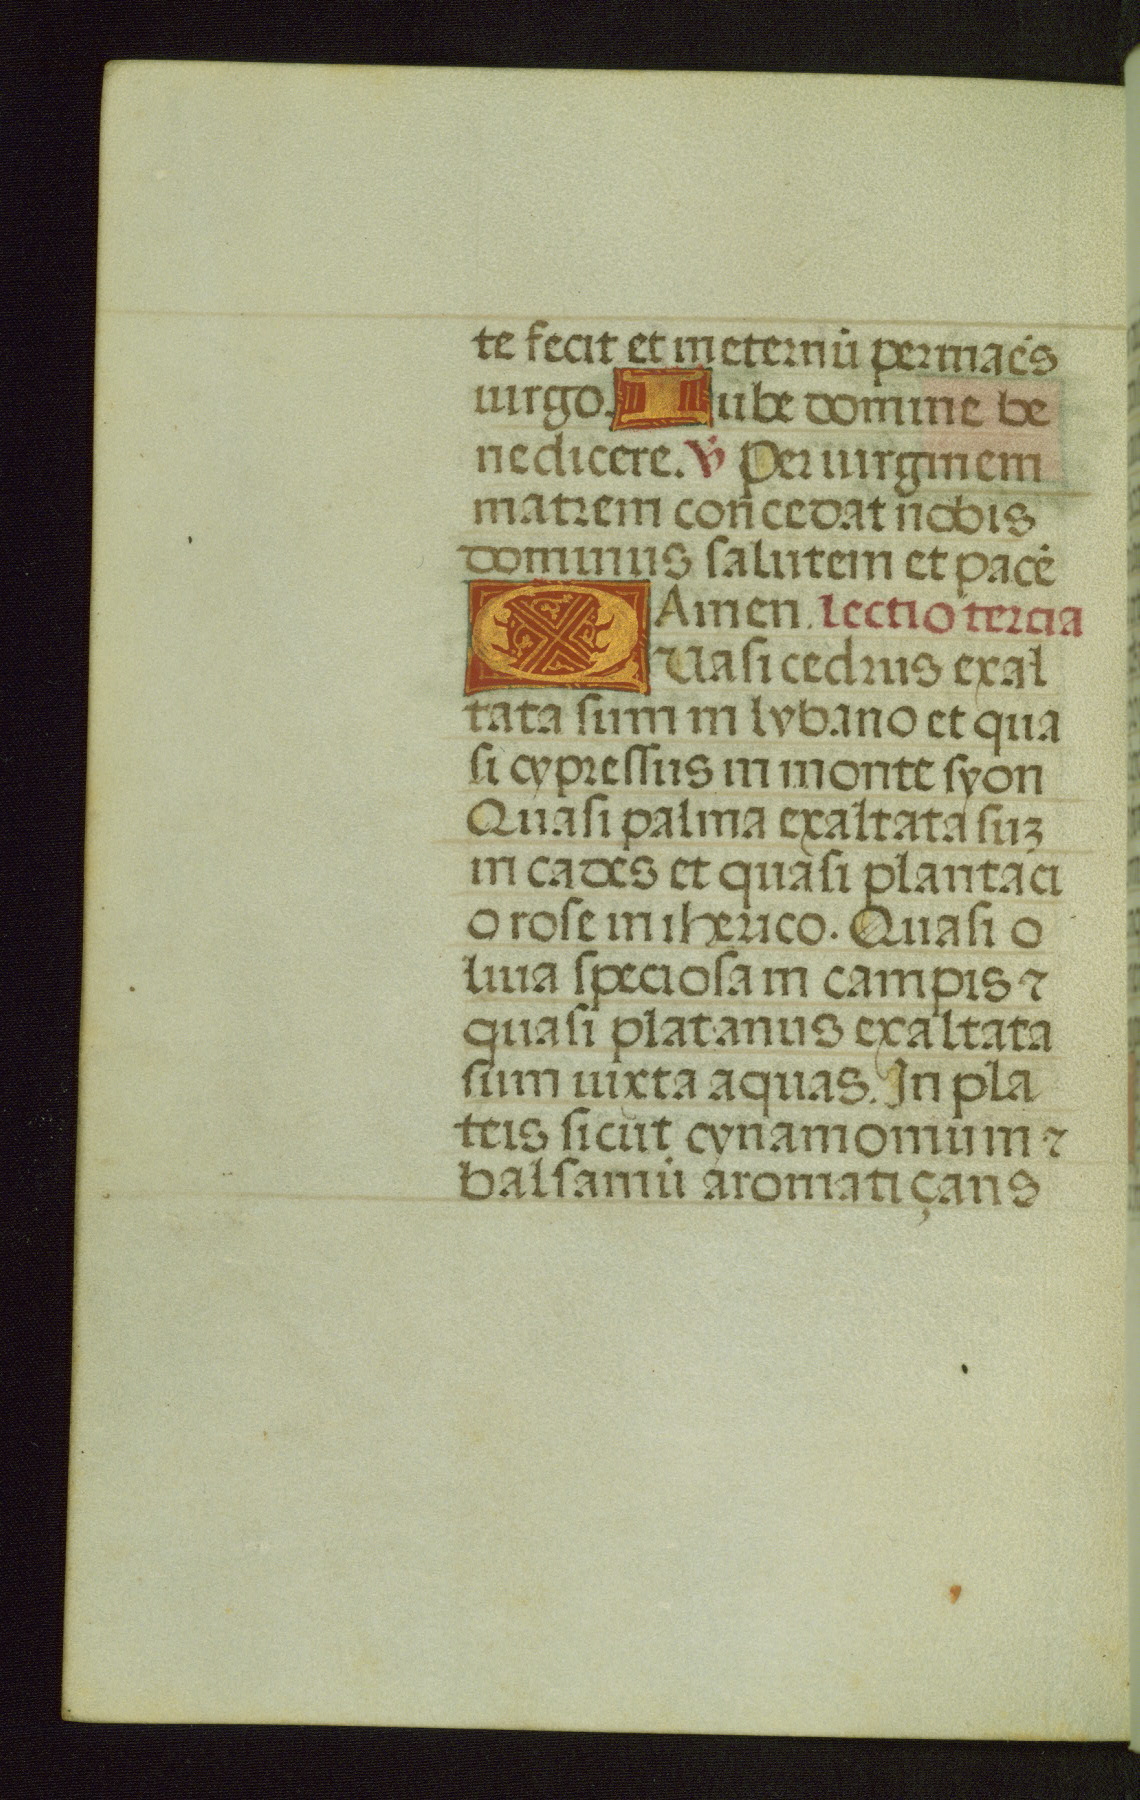 te fecit et in eternū permaēs
uirgo. Iube domine be
nedicere. ℣ Per uirginem
matrem concedat nobis
dominus salutem et pacē
Amen. Lectio tercia
Quasi cedrus exal
tata sum in lybano et qua
si cypressus in monte syon
Quasi palma exaltata suꝫ
in cades et quasi plantaci
o rose in iherico. Quasi o
liua speciosa in campis ⁊
quasi platanus exaltata
sum iuxta aquas. In pla
teis sicut cynamomum ⁊
balsamū aromatiçans